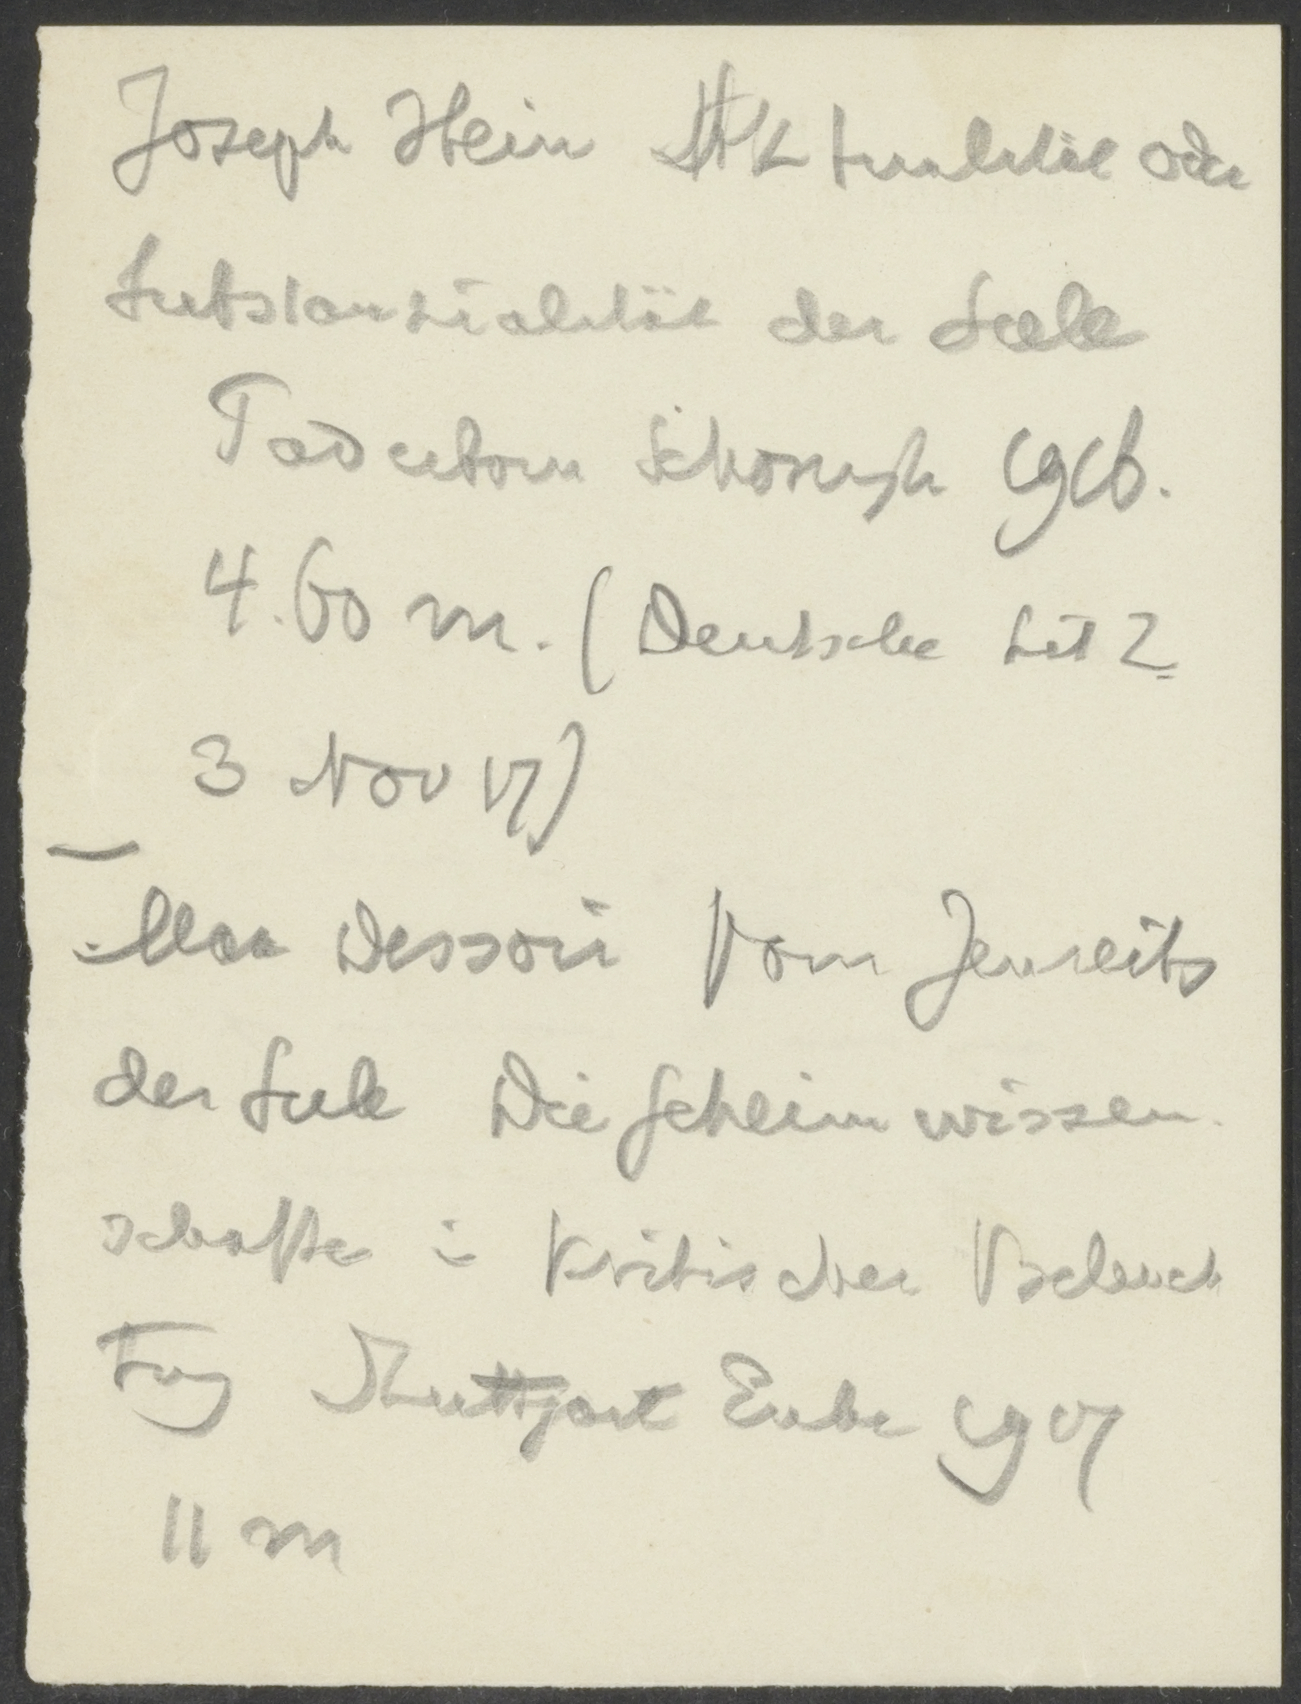 Joseph Hein Aktualität oder
Substantialität der Seele
Paderborn Schöningh 1916.
4.60 m. (Deutsche Lit Z
3 Nov 17)
Max Dessoir Vom Jenseits
der Seele Die Geheimwissen
schafte in kritischer Betrach
tung Stuttgart Enke 1917
11 m